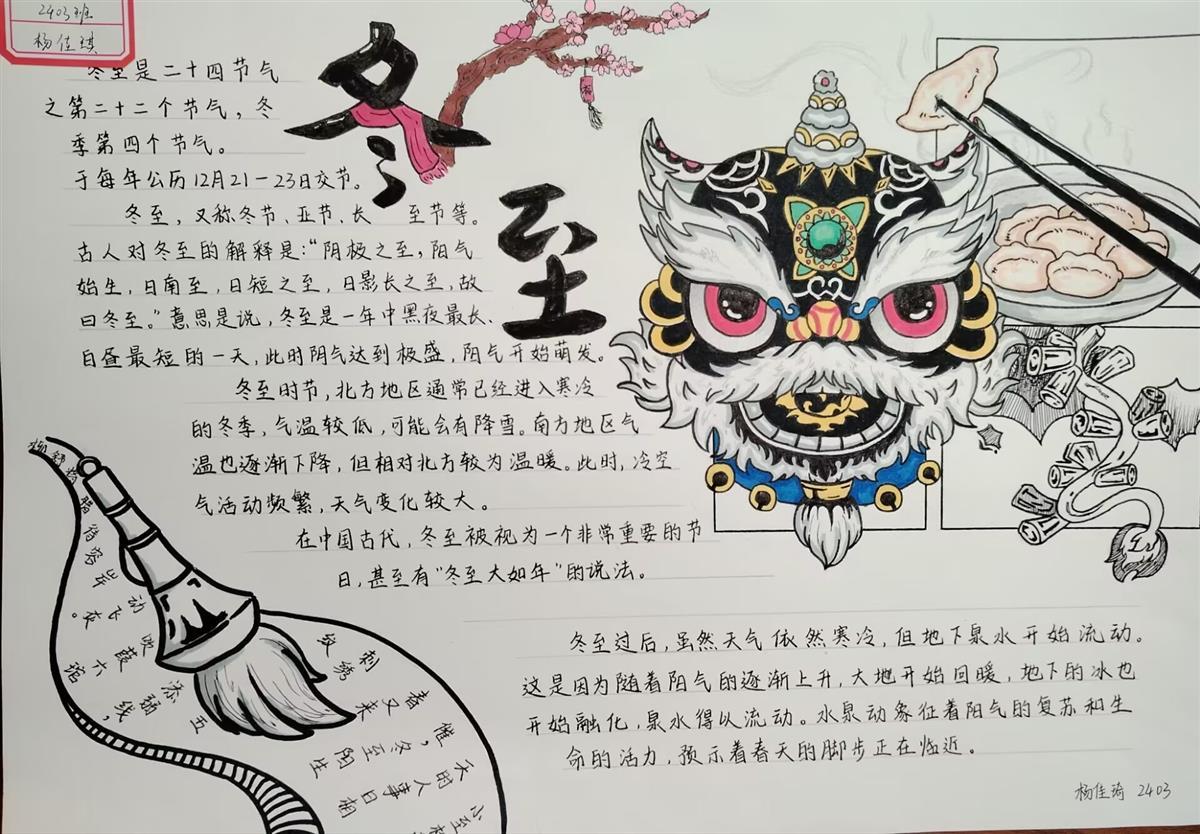 2403班
杨佳琪
冬至
冬至是二十四节气
之第二十二个节气，冬
季第四个节气。
于每年公历12月21-23日交节。
冬至，又称冬节、亚节、长 至节等。
古人对冬至的解释是：“阴极之至，阳气
始生，日南至，日短之至，日影长之至，故
曰冬至。”意思是说，冬至是一年中黑夜最长、
白昼最短的一天，此时阴气达到极盛，阴气开始萌发。
冬至时节，北方地区通常已经进入寒冷
的冬季，气温较低，可能会有降雪。南方地区气
温也逐渐下降，但相对北方较为温暖。此时，冷空
气活动频繁，天气变化较大。
在中国古代，冬至被视为一个非常重要的节
日，甚至有“冬至大如年”的说法。
冬至过后，虽然天气依然寒冷，但地下泉水开始流动。
这是因为随着阳气的逐渐上升，大地开始回暖，地下的冰也
开始融化，泉水得以流动。水泉动象征着阳气的复苏和生
命的活力，预示着春天的脚步正在临近。
天时人事日相
催，冬至阳生
春又来
刺绣
五
添弱线，
六琯
动飞
杨佳琦 2403